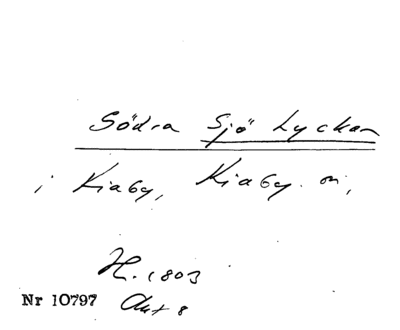 Södra Sjö Lyckan
i Kiaby, Kiaby sn,
H. 1803
Nr 10797 Akt 8